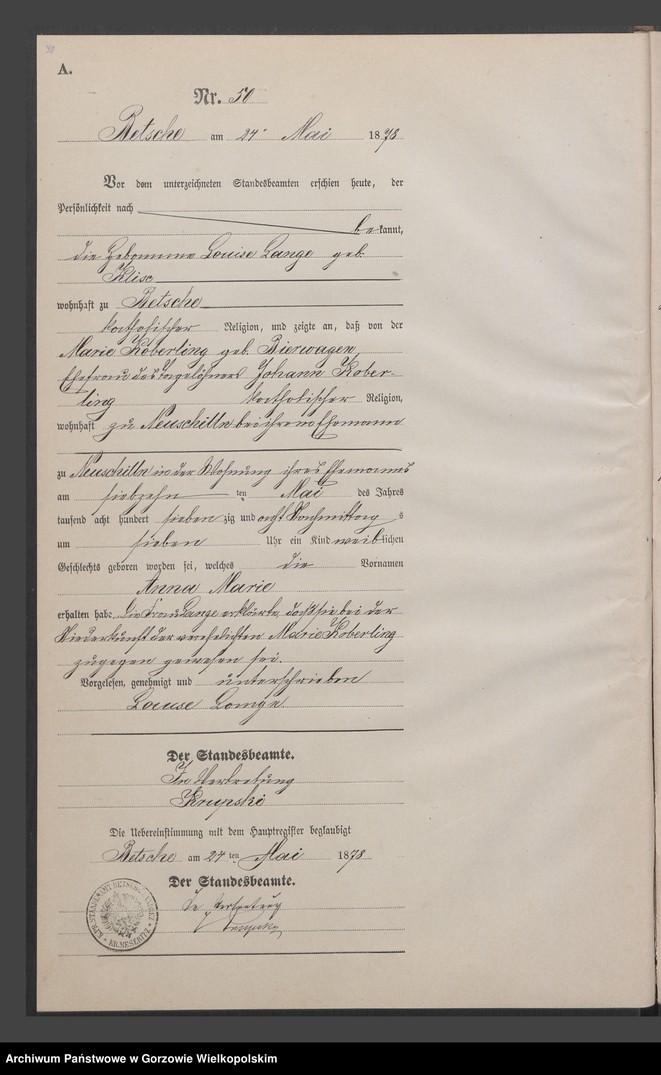 A.
Nr. 50
Betsche am 24 Mai 1878
Vor dem unterzeichneten Standesbeamten erschien heute, der
Persönlichkeit nach
bekannt,
die Hebamme Louise Lange geb.
Klise
wohnhaft zu Betsche
katholischer Religion, und zeigte an, daß von der
Marie Koberling geb. Bierwagen,
Ehefrau des Tagelöhners Johann Kober-
ling katholischer Religion,
wohnhaft zu Neuschilln bei ihrem Ehemann
zu Neuschilln in der Wohnung ihres Ehemanns
am siebzehn ten Mai des Jahres
tausend acht hundert sieben zig und acht Nachmittag s
um sieben Uhr ein Kind weiblichen
Geschlechts geboren worden sei, welches die Vornamen
Anna Marie
erhalten habe. Die Frau Lange erklärte, daß sie bei der
Niederkunft der verehelichten Marie Koberling
zugegen gewesen sei.
Vorgelesen, genehmigt und unterschrieben
Louise Lange.
Der Standesbeamte.
In Vertretung
Krupski
Die Uebereinstimmung mit dem Hauptregister beglaubigt
Betsche am 24 ten Mai 1878
Der Standesbeamte.
In Vertretung
Krupski
KR. MESERITZ
Archiwum Państwowe w Gorzowie Wielkopolskim